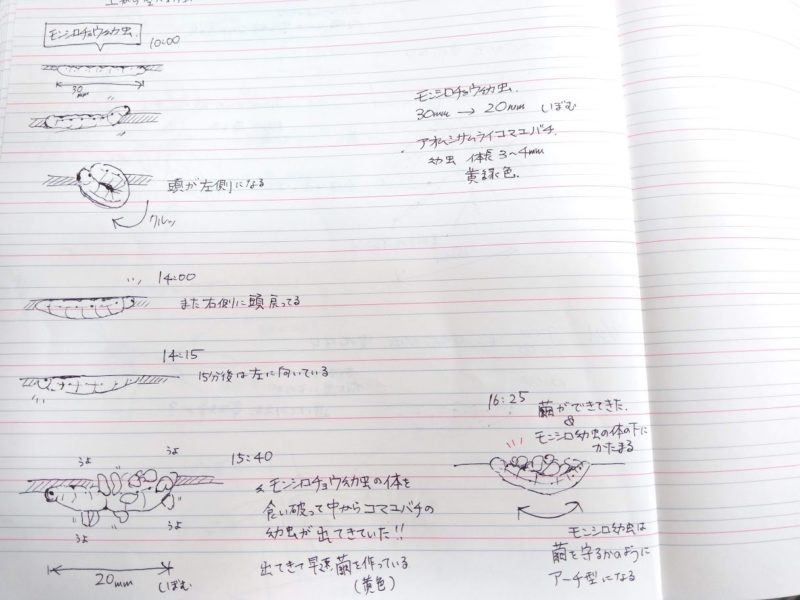 モンシロチョウ幼虫
10:00
30mm
頭が左側になる
クルッ
14:00
また右側に頭戻ってる
14:15
15分後は左に向いている
うよ うよ
15:40
モンシロチョウ幼虫の体を
食い破って中からコマユバチの
幼虫が出てきていた!!
うよ うよ
20mm
しぼむ
出てきて早速繭を作っている
(黄色)
モンシロチョウ幼虫
30mm → 20mm しぼむ
アオムシサムライコマユバチ
幼虫 体長 3~4mm
黄緑色
16:25
繭ができてきた
モンシロ幼虫の体の下に
かたまる
モンシロ幼虫は
繭を守るかのように
アーチ型になる